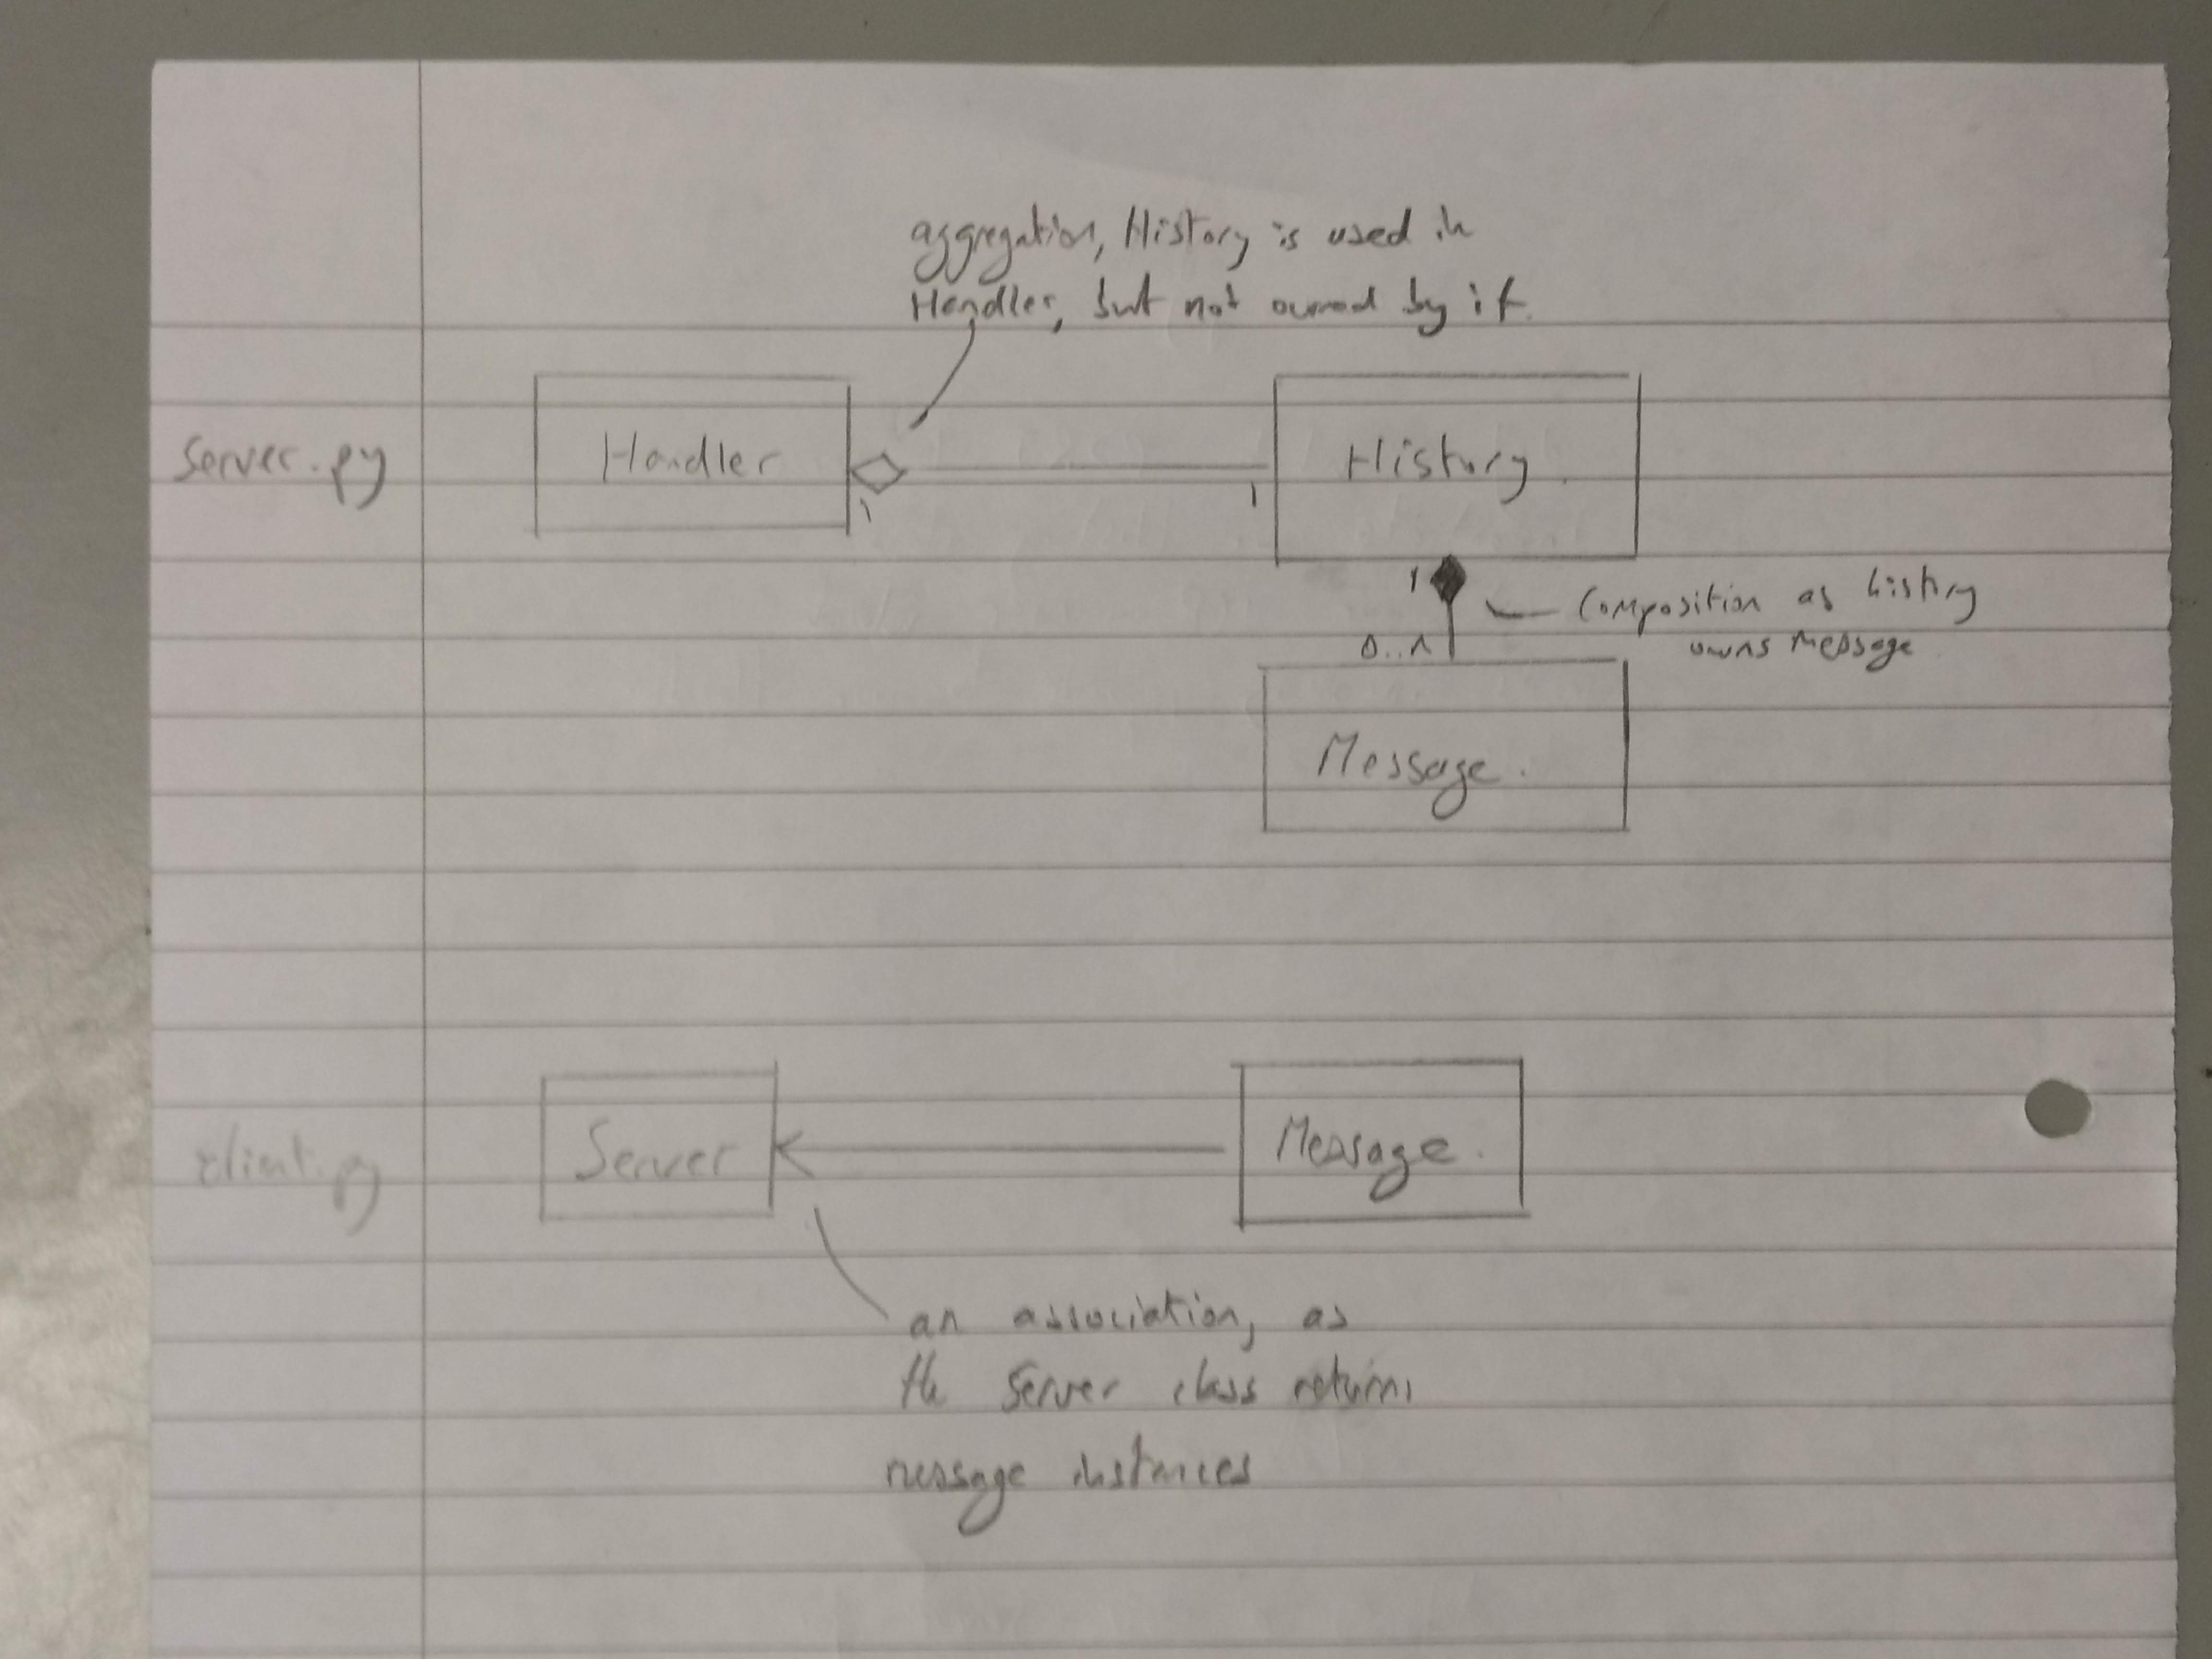 aggregation, History is used in
Handler, but not owned by it.
server.py
Handler
1
1
History.
1
composition as history
owns message
0..n
Message.
client.py
Server
Message.
an association, as
the server class returns
message instances